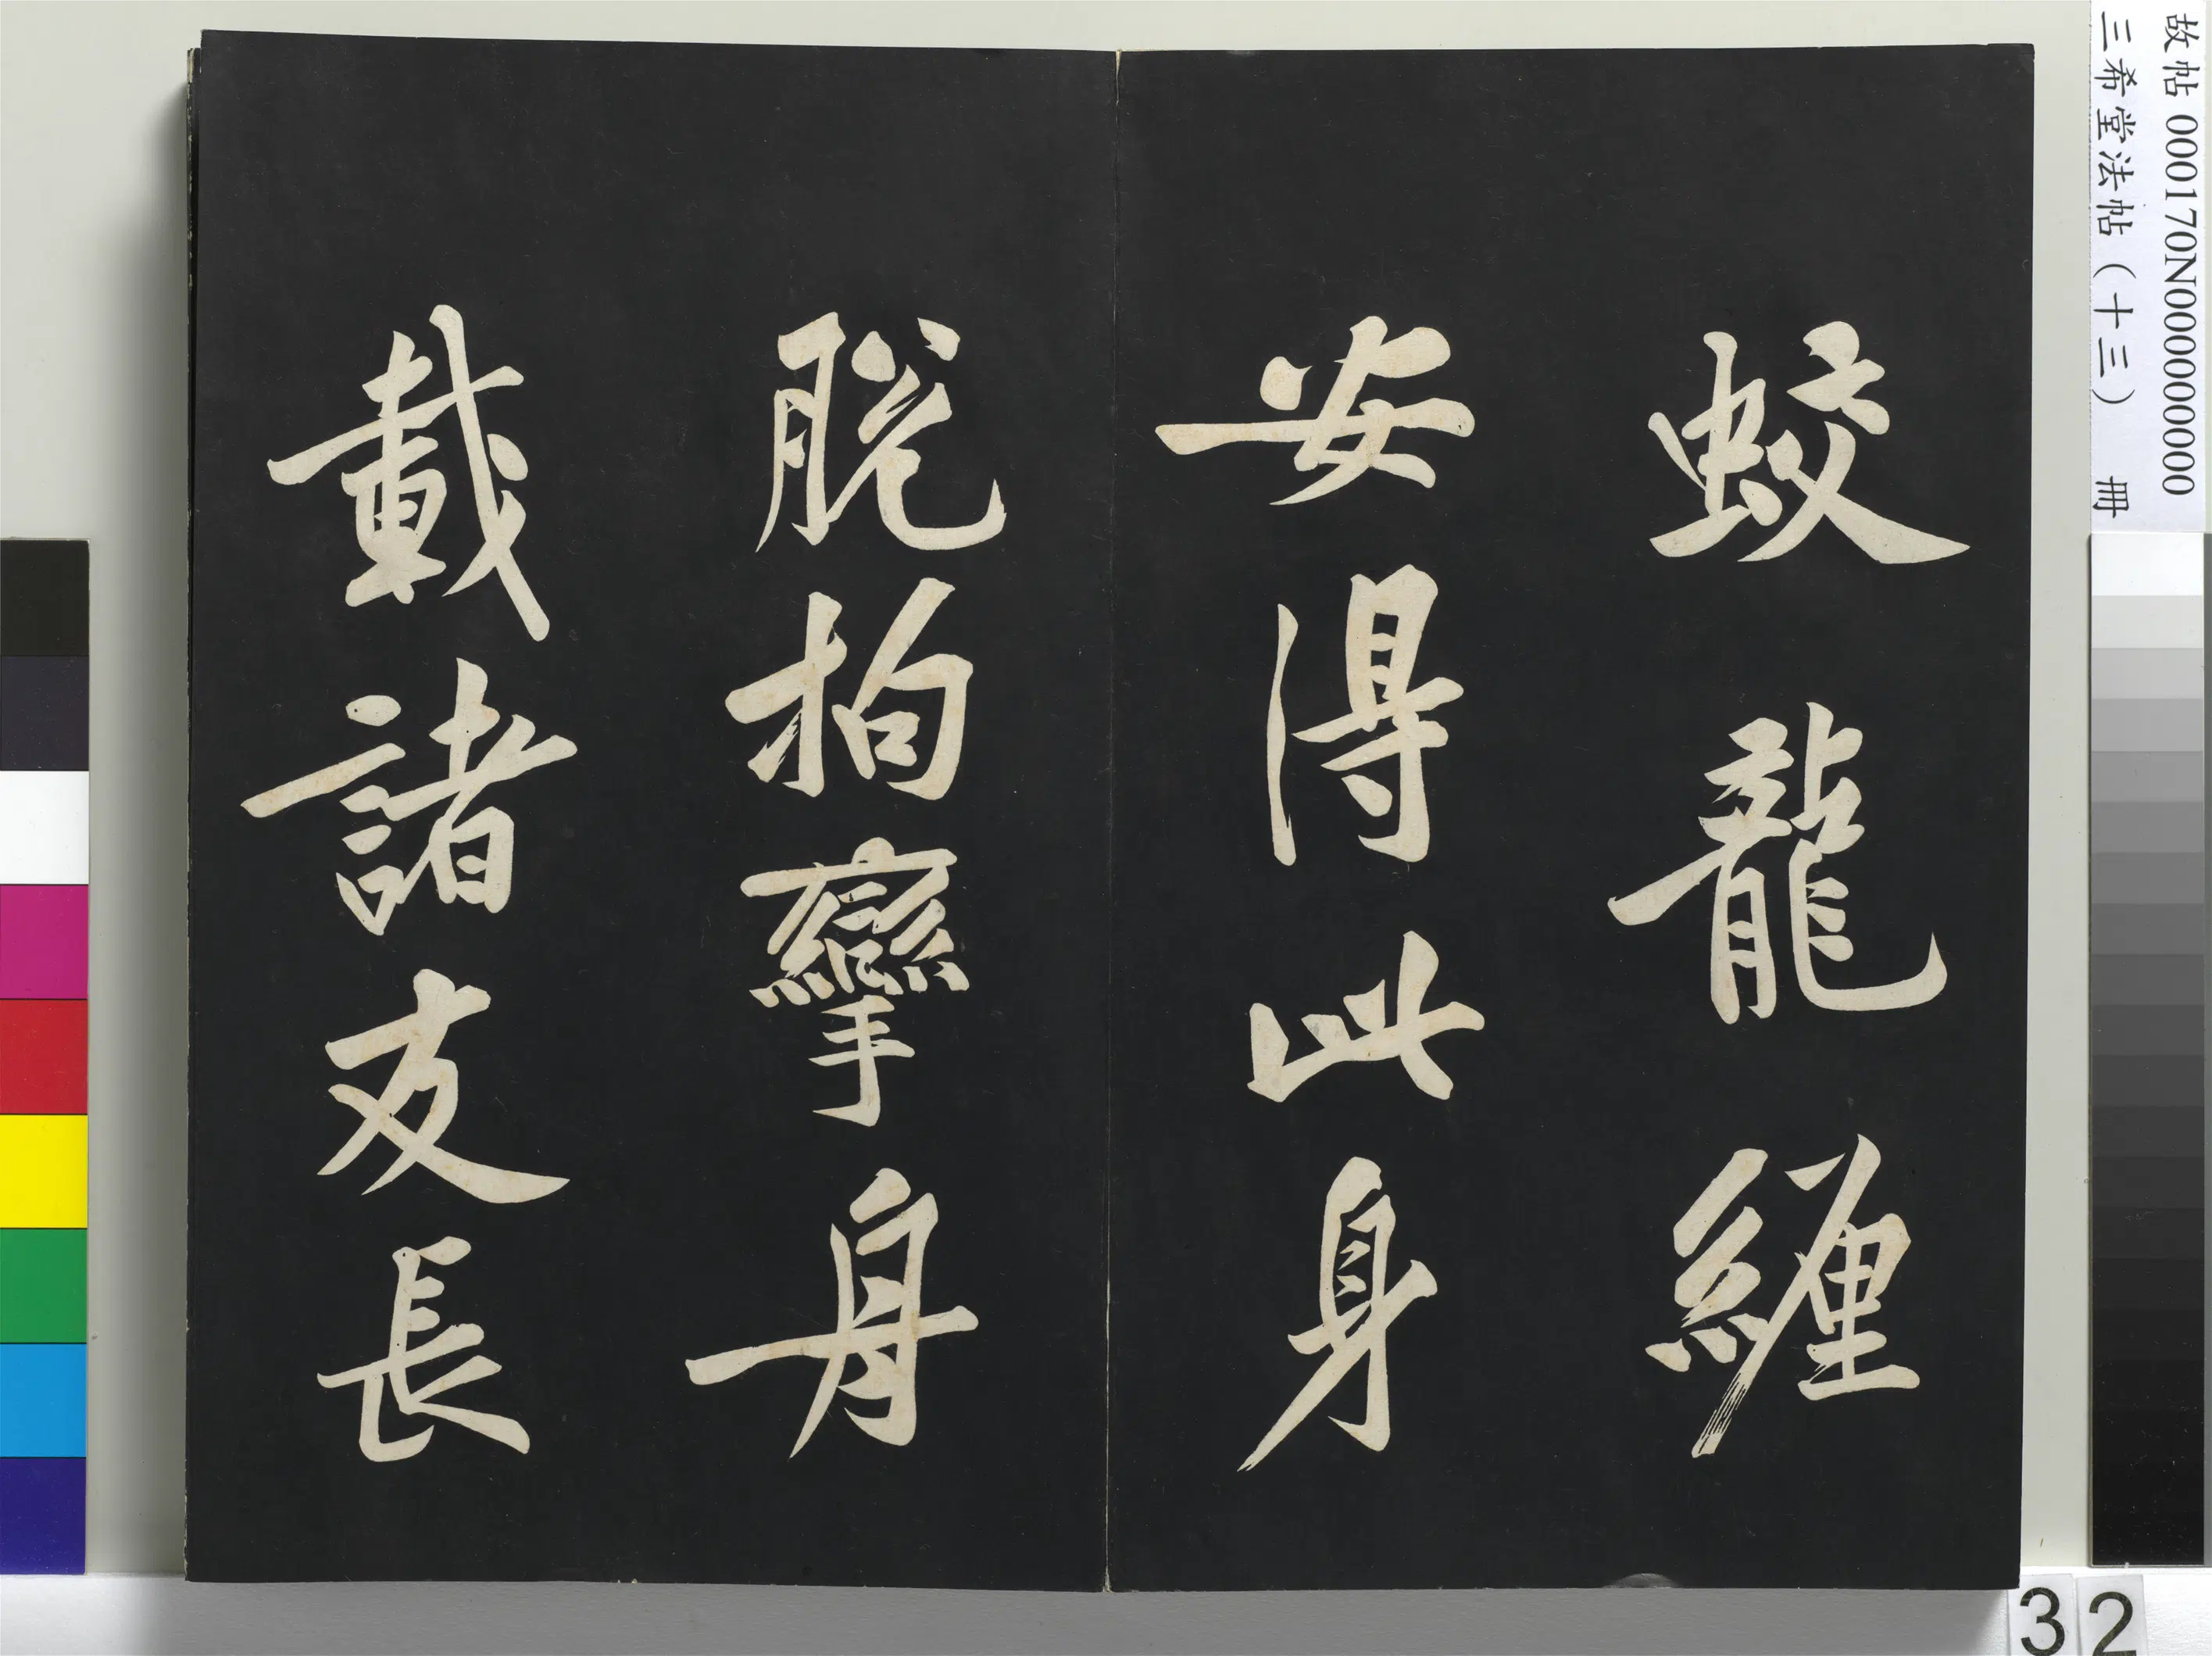 蛟龍纏
安得此身
脱拘攣舟
載諸友長
故帖 000170N000000000
三希堂法帖(十三) 冊
32